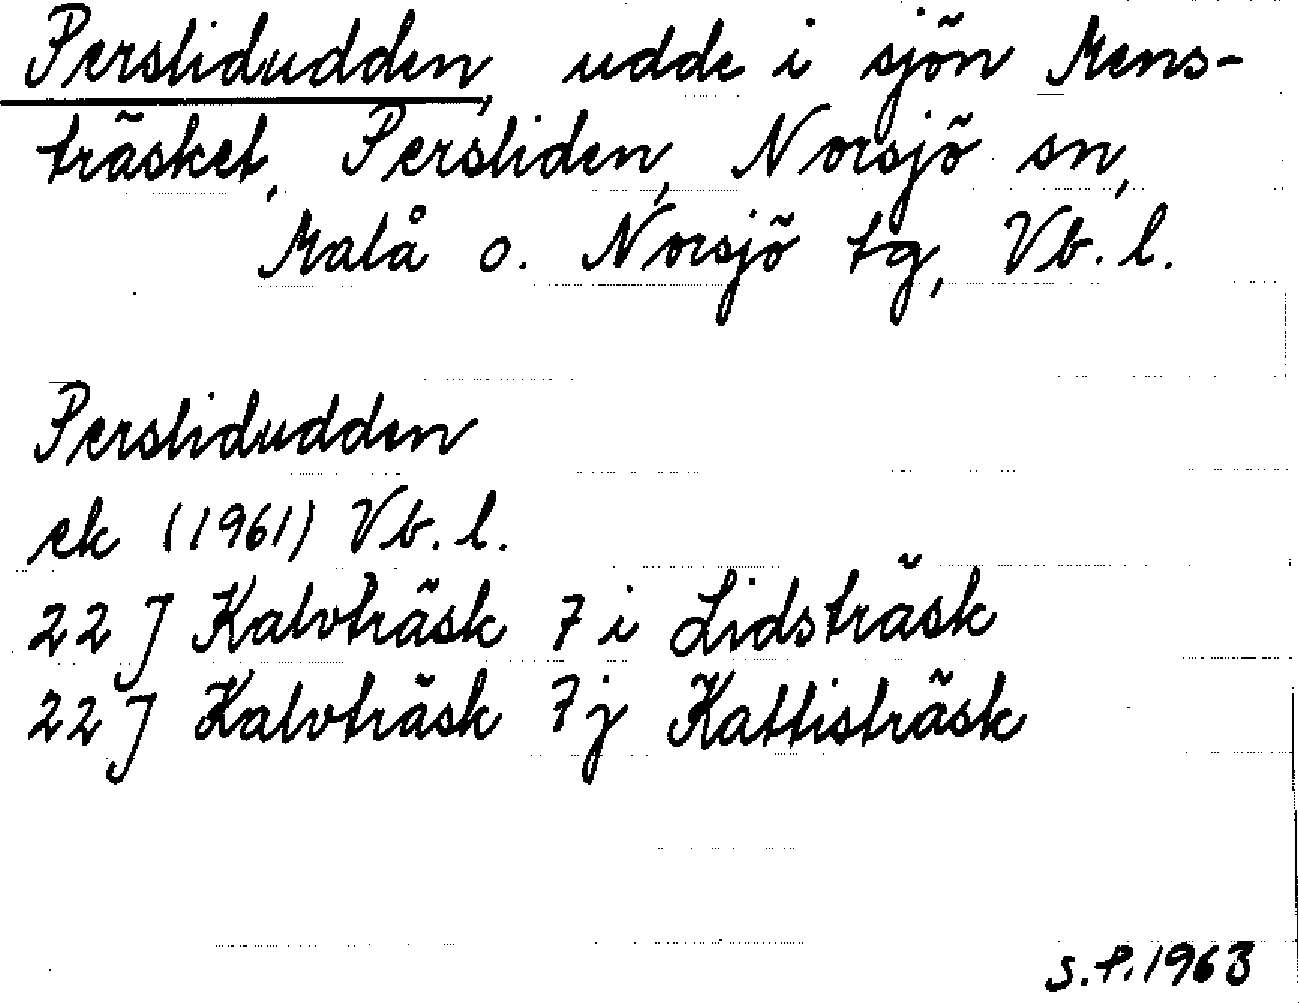 Perslidudden, udde i sjön Mens-
träsket, Persliden, Norsjö sn,
Malå o. Norsjö tg, Vb. l.
Perslidudden
ek (1961) Vb. l.
22 J Kalvträsk 7 i Lidsträsk
22 J Kalvträsk 7 j Kattisträsk
S.P. 1963